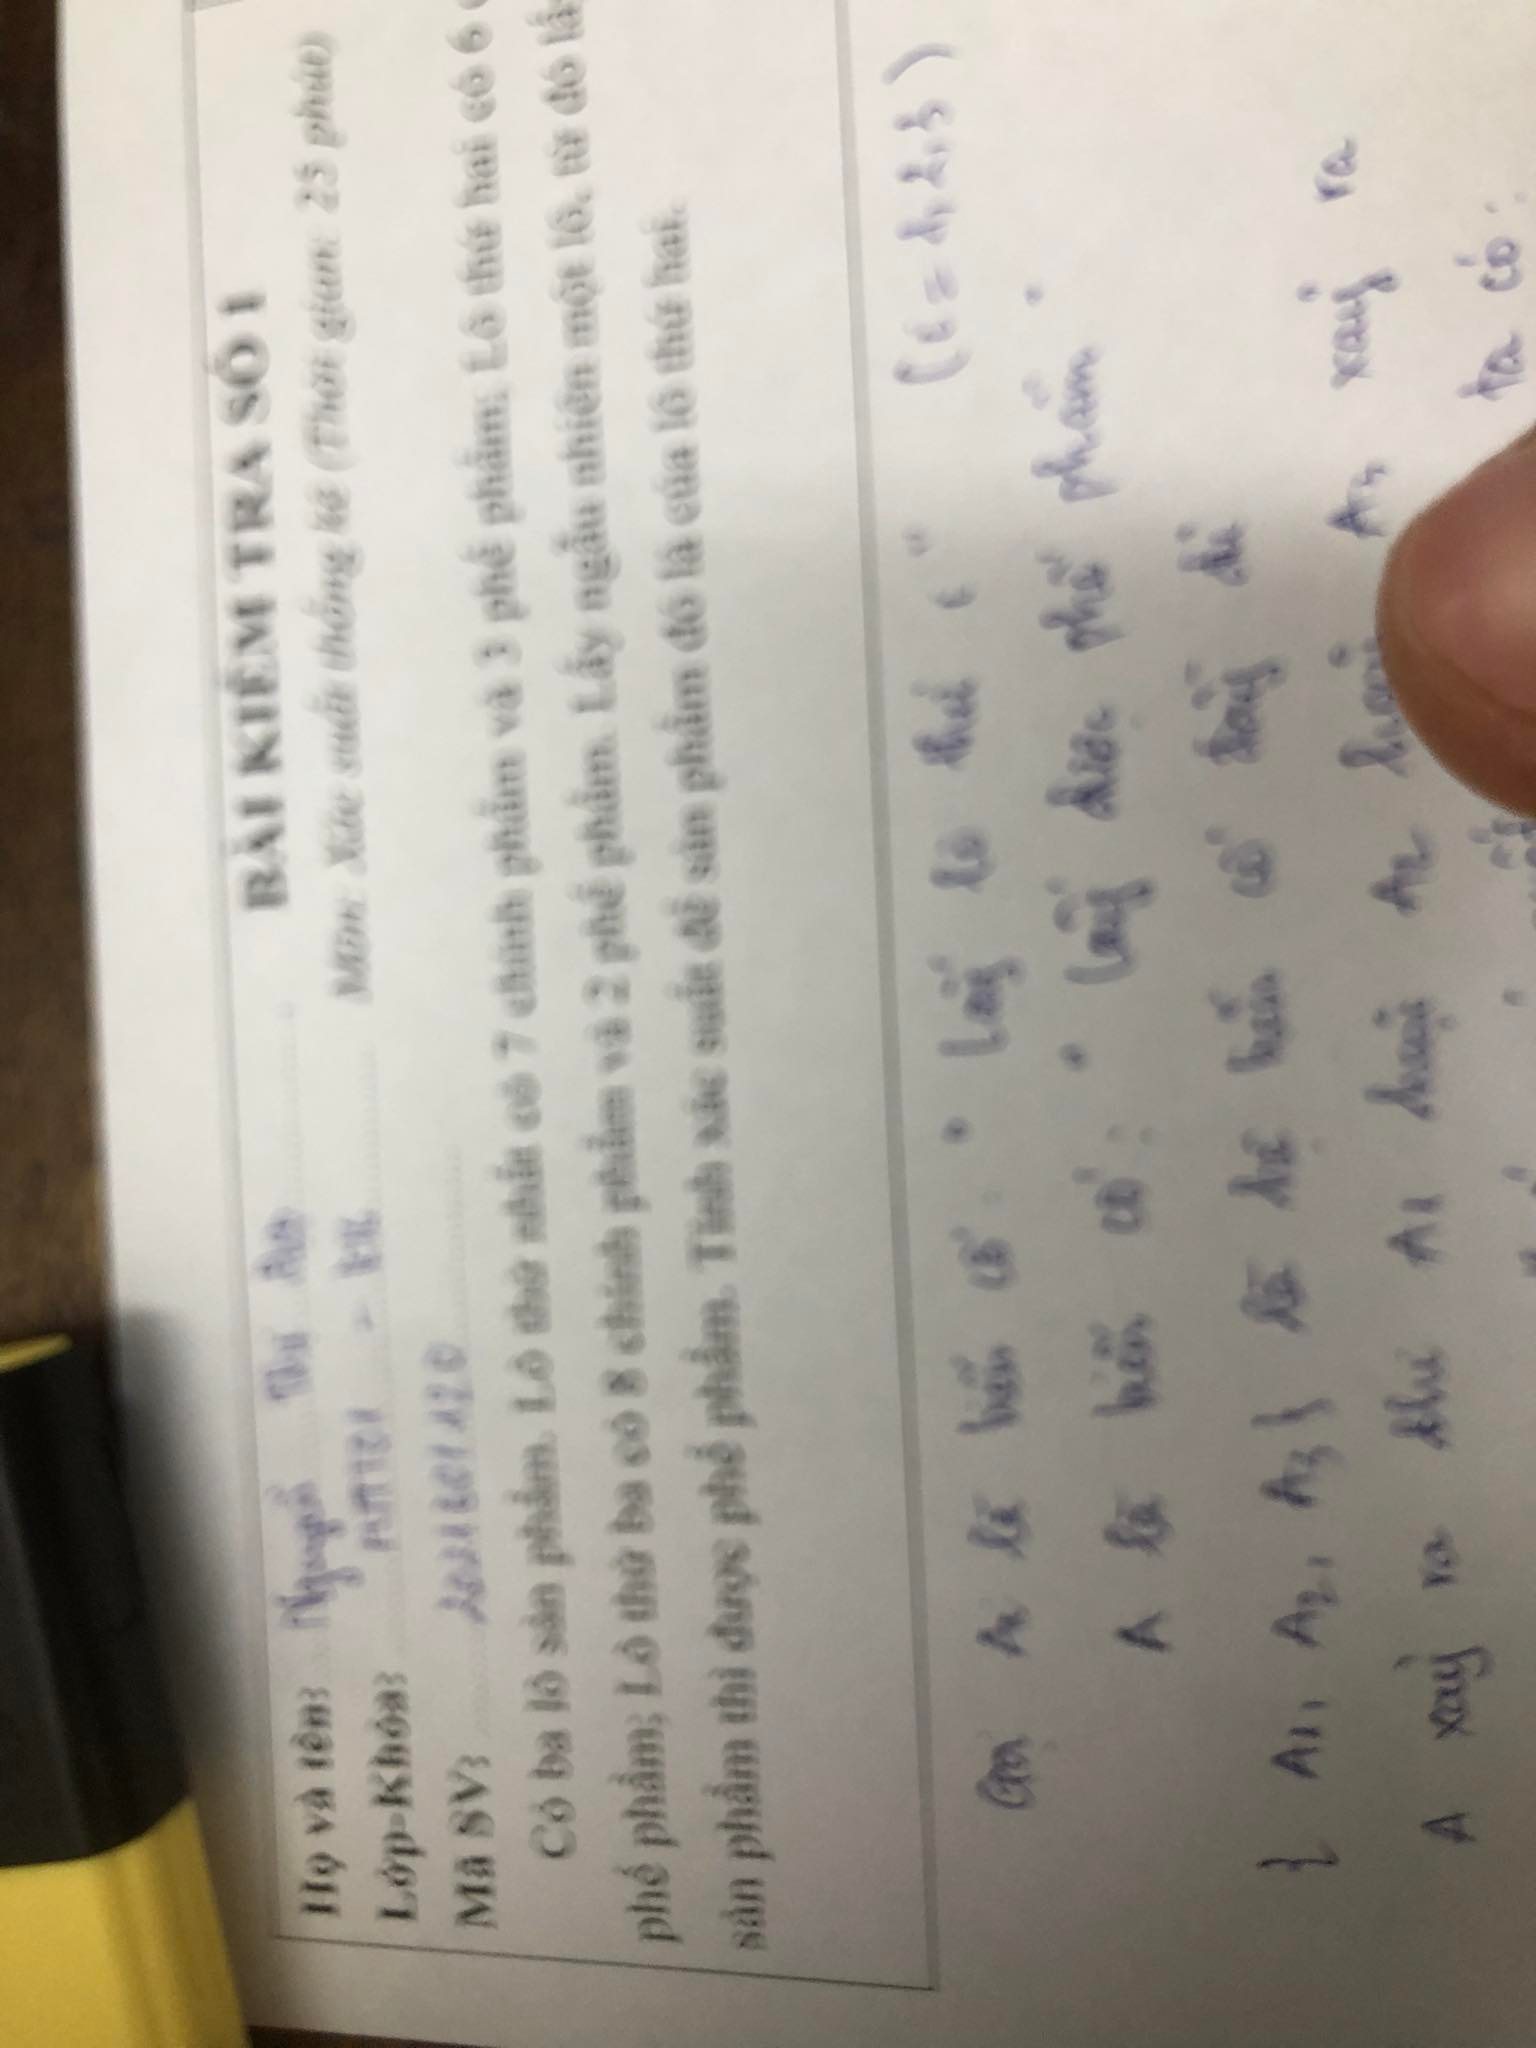 BÀI KIỂM TRA SỐ 1
Họ và tên: Nguyễn Thị
Môn: Xác suất thống kê (Thời gian: 25 phút)
Lớp-Khóa:
Mã SV:
Có ba lô sản phẩm. Lô thứ nhất có 7 chính phẩm và 3 phế phẩm; Lô thứ hai có 6
phế phẩm; Lô thứ ba có 8 chính phẩm và 2 phế phẩm. Lấy ngẫu nhiên một lô, từ đó lấy
sản phẩm thì được phế phẩm. Tính xác suất để sản phẩm đó là của lô thứ hai.
Gọi Ai là biến cố: " Lấy lô thứ i " (i = 1,2,3)
A là biến cố: " Lấy được phế phẩm "
{ A1, A2, A3 } là hệ biến cố đầy đủ
A xảy ra khi A1 hoặc A2 hoặc A3 xảy ra
ta có: